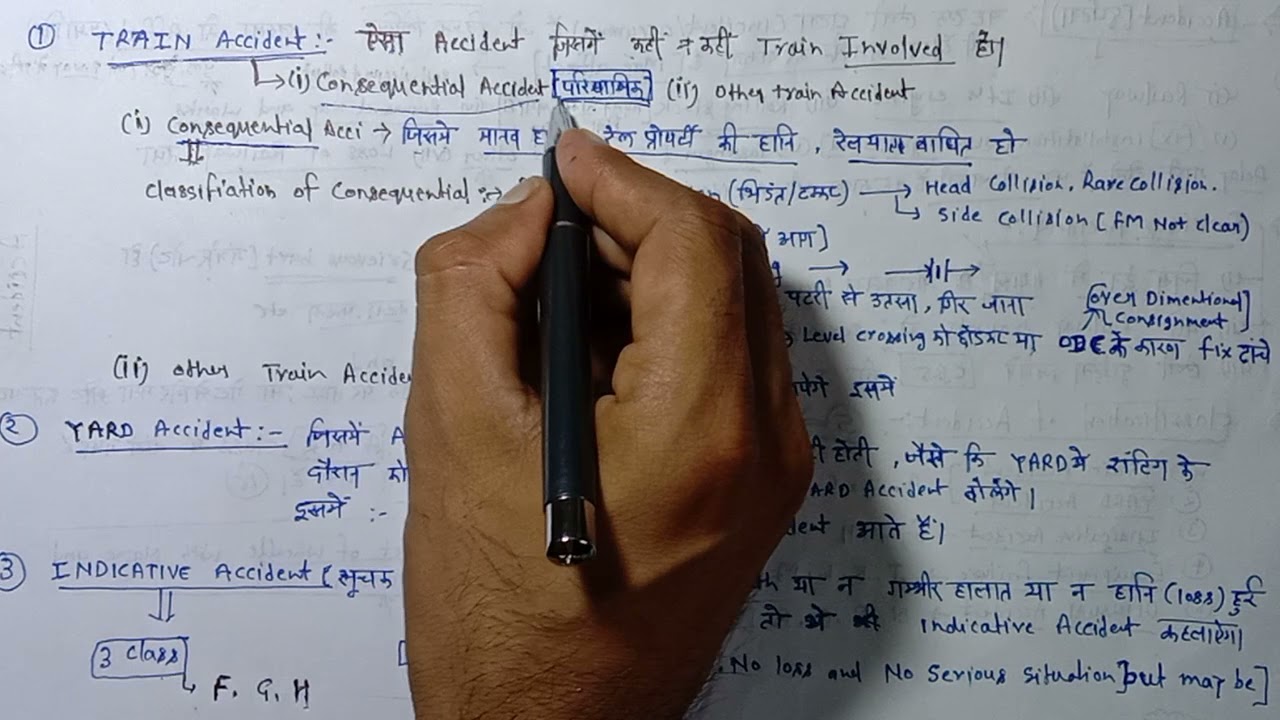 ① TRAIN Accident :- ऐसा Accident जिसमें कहीं न कहीं Train Involved हो।
(i) Consequential Accident [परिणामिक] (ii) Other train Accident
(i) Consequential Acci → जिसमे मानव हा रेल प्रोपर्टी की हानि, रेलयातa बाधित हो
Classifiation of Consequential :→ (भिडंत/टक्कर) → Head Collision, Rare Collision.
Side Collision [FM Not Clear)
आग]
→
पटरी से उतरना, गिर जाना [Over Dimentional
Consignment]
Level crossing को छोडकर या ODC के कारण fix ढांचे
(ii) Other Train Accide इसमें
② YARD Accident :- जिसमें A होती, जैसे कि YARD मे शंटिग के
दौरान को YARD Accident बोलेंगे।
इसमें :- dent आते हैं।
③ INDICATIVE Accident [सूचक या न गम्भीर हालात या न हानि (loss) हुई
तो भी Indicative Accident कहलाऐगा।
3 class [ No loss and No Serious situation] but may be]
F. G. H